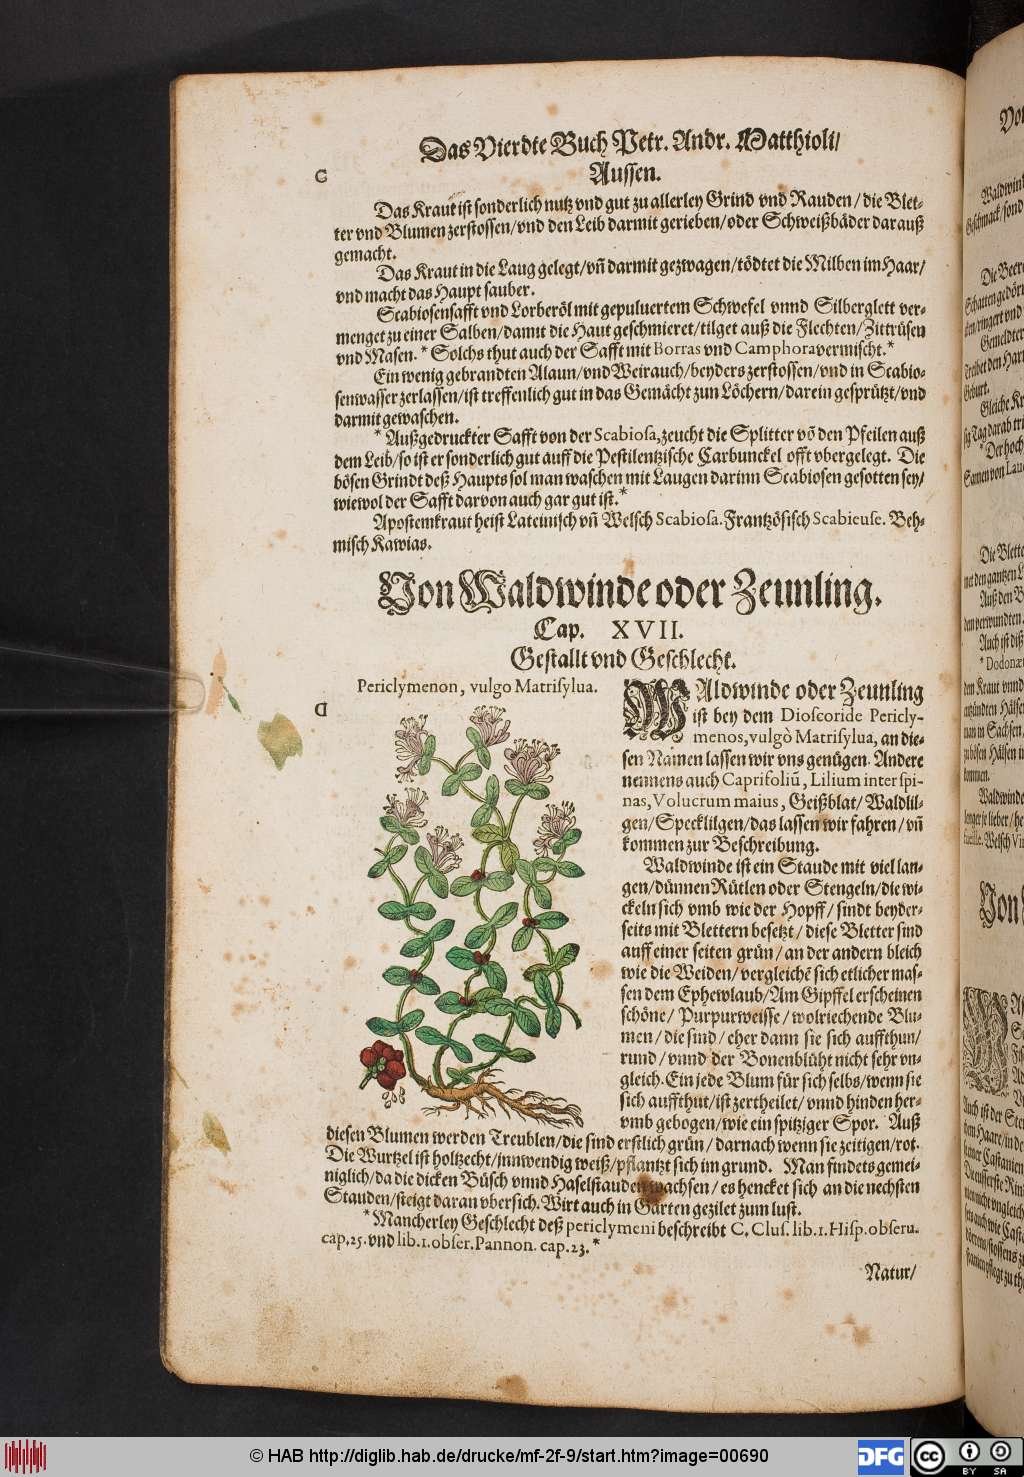 Das Vierdte Buch Petr. Andr. Matthioli/
C
Aussen.
Das Kraut ist sonderlich nutz vnd gut zu allerley Grind vnd Rauden/die Blet-
ter vnd Blumen zerstossen/vnd den Leib darmit gerieben/oder Schweißbäder darauß
gemacht.
Das Kraut in die Laug gelegt/vñ darmit gezwagen/tödtet die Milben im Haar/
vnd macht das Haupt sauber.
Scabiosensafft vnd Lorberöl mit gepuluertem Schwefel vnnd Silberglett ver-
menget zu einer Salben/damit die Haut geschmieret/tilget auß die Flechten/Zittrüsen
vnd Masen. * Solchs thut auch der Safft mit Borras vnd Camphora vermischt.*
Ein wenig gebrandten Alaun/vnd Weirauch/beyders zerstossen/vnd in Scabio-
senwasser zerlassen/ist treffenlich gut in das Gemächt zun Löchern/darein gesprützt/vnd
darmit gewaschen.
* Außgedruckter Safft von der Scabiosa, zeucht die Splitter võ den Pfeilen auß
dem Leib/so ist er sonderlich gut auff die Pestilentzische Carbunckel offt vbergelegt. Die
bösen Grindt deß Haupts sol man waschen mit Laugen darinn Scabiosen gesotten sey/
wiewol der Safft darvon auch gar gut ist.*
Apostemkraut heist Lateinisch vñ Welsch Scabiosa. Frantzösisch Scabieuse. Beh-
misch Kawias.
Von Waldwinde oder Zeunling.
Cap. XVII.
Gestallt vnd Geschlecht.
Periclymenon, vulgo Matrisylua.
D
WAldwinde oder Zeunling
ist bey dem Dioscoride Pericly-
menos, vulgò Matrisylua, an die-
sen Namen lassen wir vns genügen. Andere
nennens auch Caprifoliũ, Lilium inter spi-
nas, Volucrum maius, Geißblat/Waldlil-
gen/Specklilgen/das lassen wir fahren/vñ
kommen zur Beschreibung.
Waldwinde ist ein Staude mit viel lan-
gen/dünnen Rütlen oder Stengeln/die wi-
ckeln sich vmb wie der Hopff/sindt beyder-
seits mit Blettern besetzt/diese Bletter sind
auff einer seiten grün/an der andern bleich
wie die Weiden/vergleichẽ sich etlicher mas-
sen dem Ephewlaub/Am Gipffel erscheinen
schöne/Purpurweisse/wolriechende Blu-
men/die sind/eher dann sie sich auffthun/
rund/vnnd der Bonenblüht nicht sehr vn-
gleich. Ein jede Blum für sich selbs/wenn sie
sich auffthut/ist zertheilet/vnnd hinden her-
vmb gebogen/wie ein spitziger Spor. Auß
diesen Blumen werden Treublen/die sind erstlich grün/darnach wenn sie zeitigen/rot.
Die Wurtzel ist holtzecht/innwendig weiß/pflantzt sich im grund. Man findets gemei-
niglich/da die dicken Büsch vnnd Haselstauden wachsen/es hencket sich an die nechsten
Stauden/steigt daran vbersich. Wirt auch in Gärten gezilet zum lust.
* Mancherley Geschlecht deß periclymeni beschreibt C. Clus. lib.1. Hisp. obseru.
cap.25. vnd lib.1. obser. Pannon. cap.23.*
Natur/
© HAB http://diglib.hab.de/drucke/mf-2f-9/start.htm?image=00690
DFG
cc
BY SA